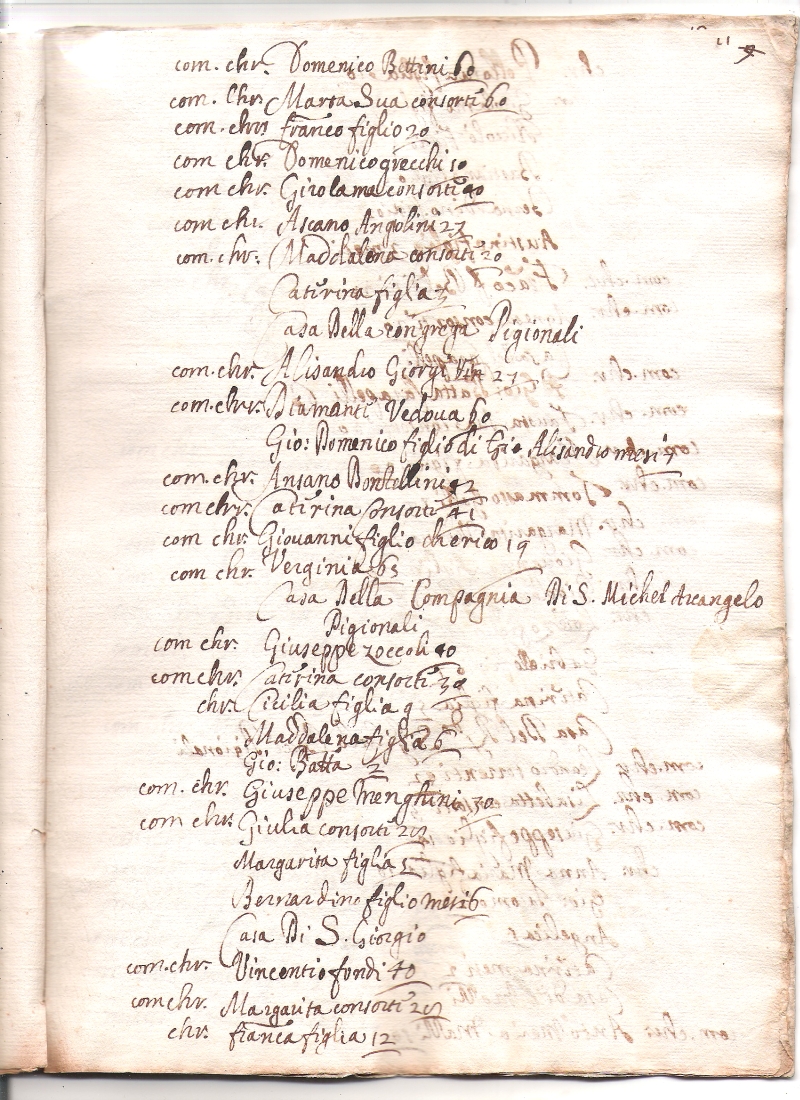 com. chr. Domenico Bettini 60
com. Chrs Marta Sua consorti 60
com. chrs franco figlio 20
com chr. Domenico grecchi 50
com chr. Girolama consorti 40
com chr. Ascano Angolini 27
com. chr. Maddalena consorti 20
Caterina figlia 3
Casa Della congrega Pigionali
com. chr. Alisandro Giorgi 27
com. chrs. Diamanti Vedova 60
Gio: Domenico figlio di Gio Alisandro mesi 7
com. chr. Ansano Bontellini 42
com chr. Caterina Consorti 41
com. chr. Giovanni figlio cherico 19
com chr. Verginia 63
Casa Della Compagnia Di S. Michel Arcangelo
Pigionali
com chr. Giuseppe zoccoli 40
com chr. Caterina consorti 30
chr. Cicilia figlia 9
Maddalena figlia 6
Gio: Batta 2
com. chr. Giuseppe Menghini 30
com chr. Giulia consorti
Margarita figlia 5
Bernardino figlio mesi 6
Casa Di S. Giorgio
com. chr. Vincentio fondi 40
com chr. Margarita consorti
chr. franca figlia 12